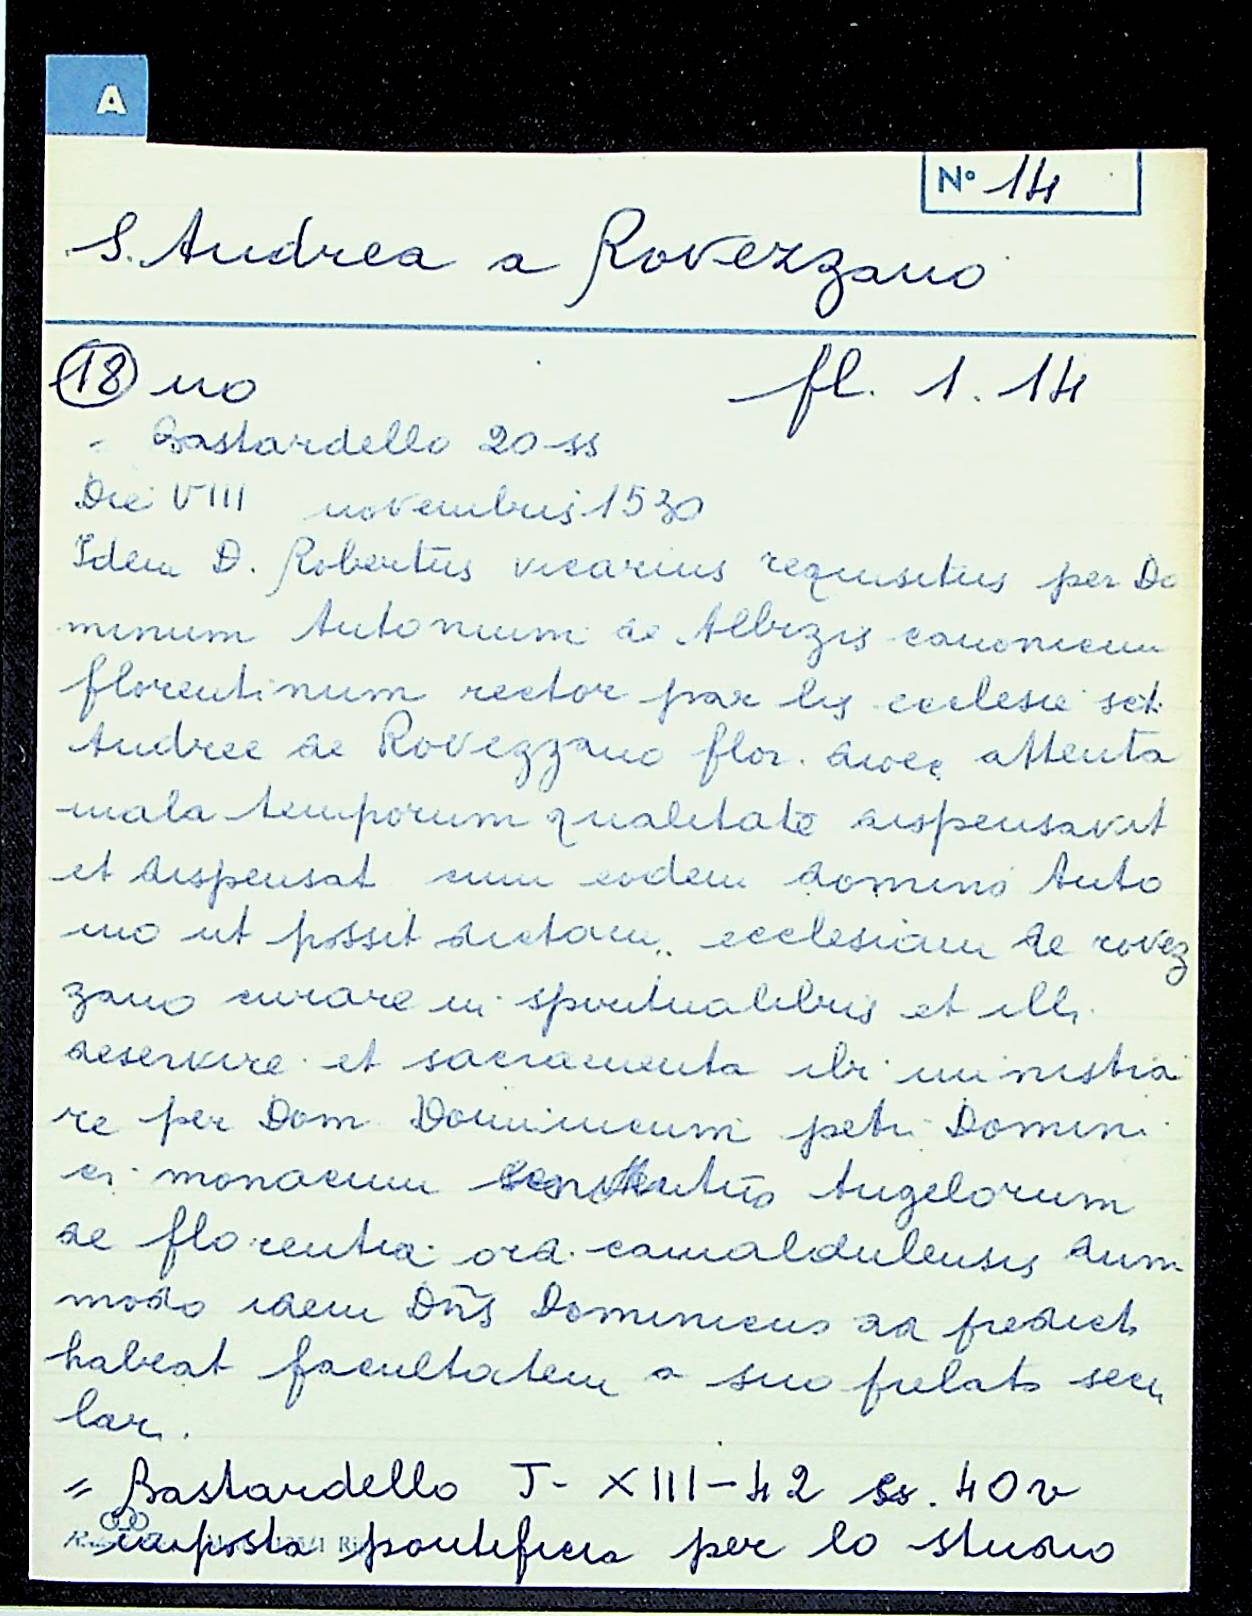 A
N° 14
S. Andrea a Rovezzano
18 no fl. 1. 14
= Bastardello 20-ss
Die VIII novembris 1530
Idem D. Robertus vicarius requisitus per Do
minum Antonium de Albizis canonicum
florentinum rector par lis ecclesie sct
Andree de Rovezzano flor. dioec attenta
mala temporum qualitate dispensavit
et dispensat cum eodem domino Anto
nio ut possit dictam ecclesiam de rovez
zano curare in spiritualibus et illi
deservire et sacramenta ibi ministra
re per Dom Dominicum petri Domini
ci monacum Angelorum
de florentia ord. camaldulensis dum
modo idem Dñs Dominicus ad predicta
habeat facultatem a suo prelato secu
lari.
= Bastardello J - XIII - 42 ss. 40v
imposta pontificia per lo studio